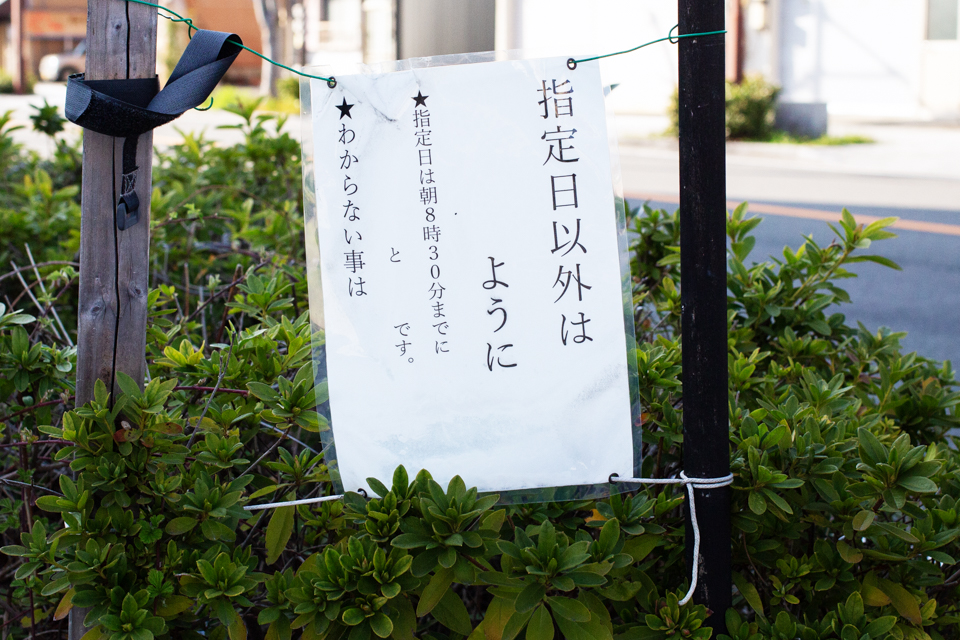 指定日以外は
ように
★指定日は朝8時30分までに
と です。
★わからない事は